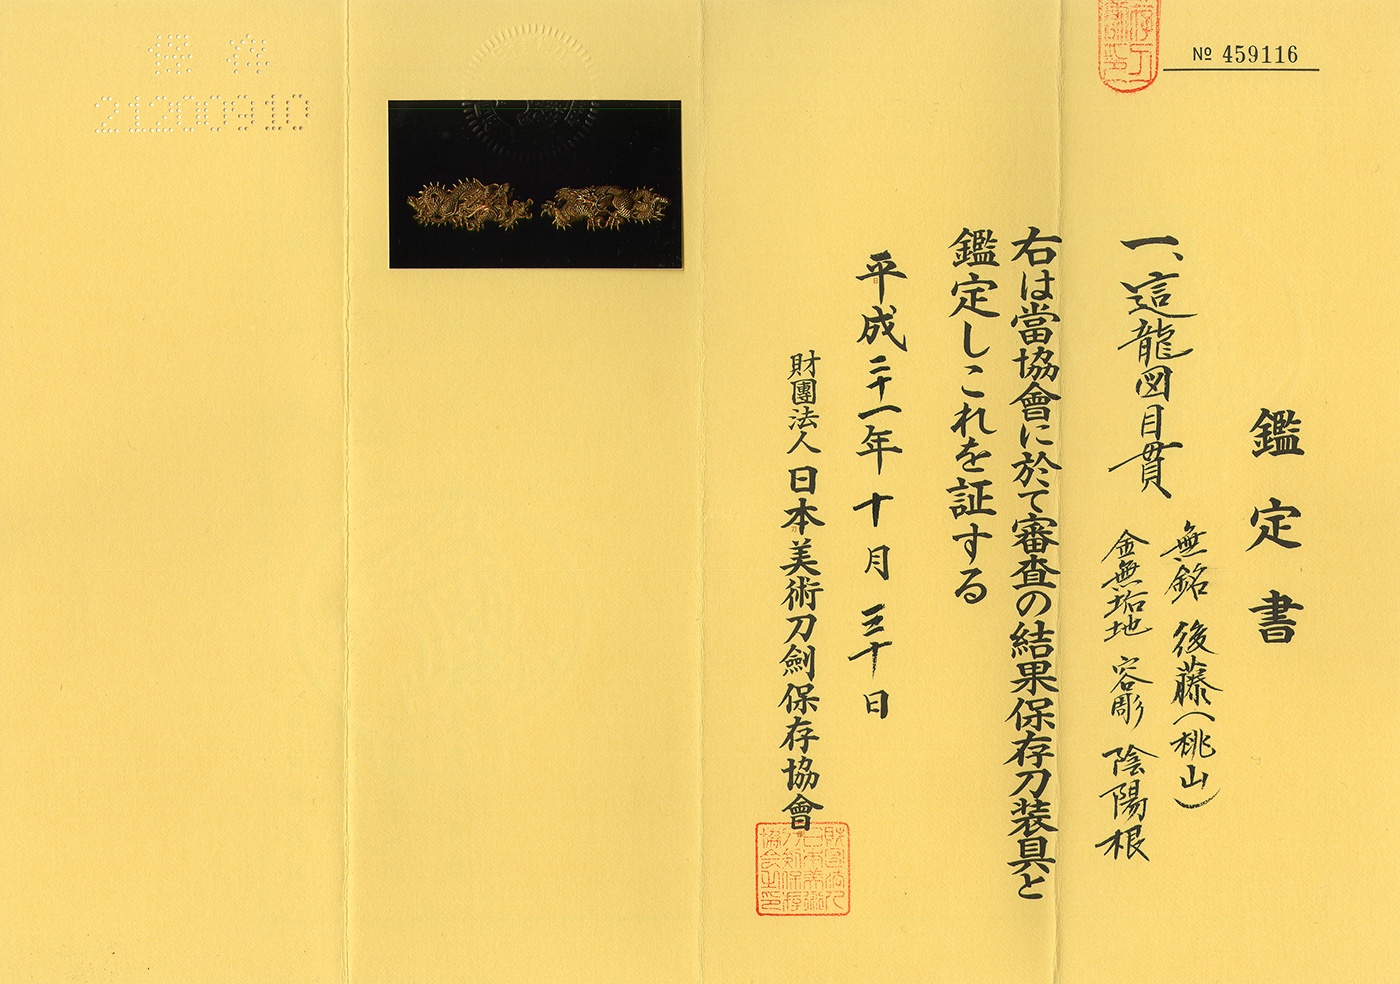 № 459116
鑑定書
一、這龍図目貫
無銘 後藤(桃山)
金無垢地 容彫 陰陽根
右は當協會に於て審査の結果保存刀装具と
鑑定しこれを証する
平成二十一年十月三十日
財團法人日本美術刀劍保存協會
財団法人日本美術刀剣保存協会之印
保存
21200910